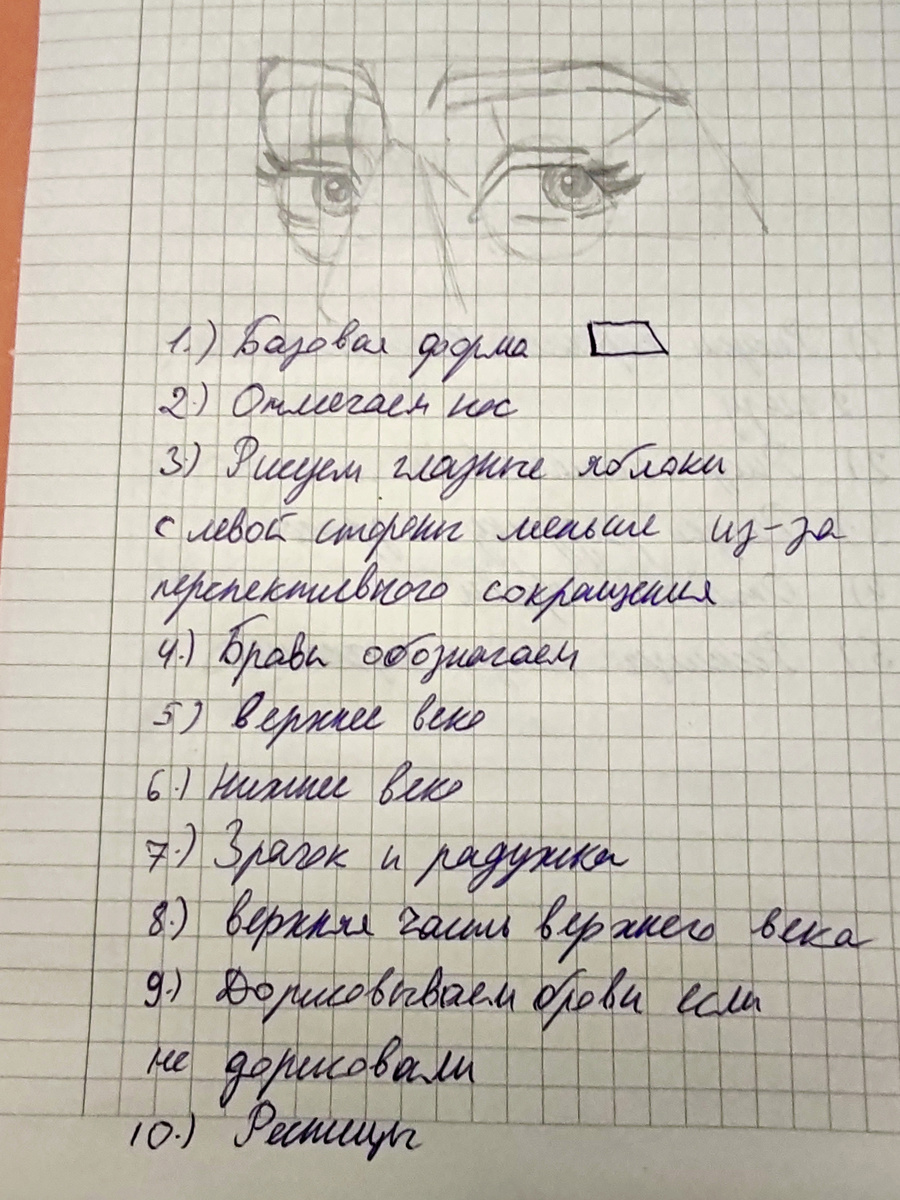 1.) Базовая форма
2.) Отмечаем нос
3.) Рисуем глазные яблоки
с левой стороны меньше из-за
перспективного сокращения
4.) Брови обозначаем
5.) Верхнее веко
6.) Нижнее веко
7.) Зрачок и радужка
8.) верхняя часть верхнего века
9.) Дорисовываем брови если
не дорисовали
10.) Ресницы